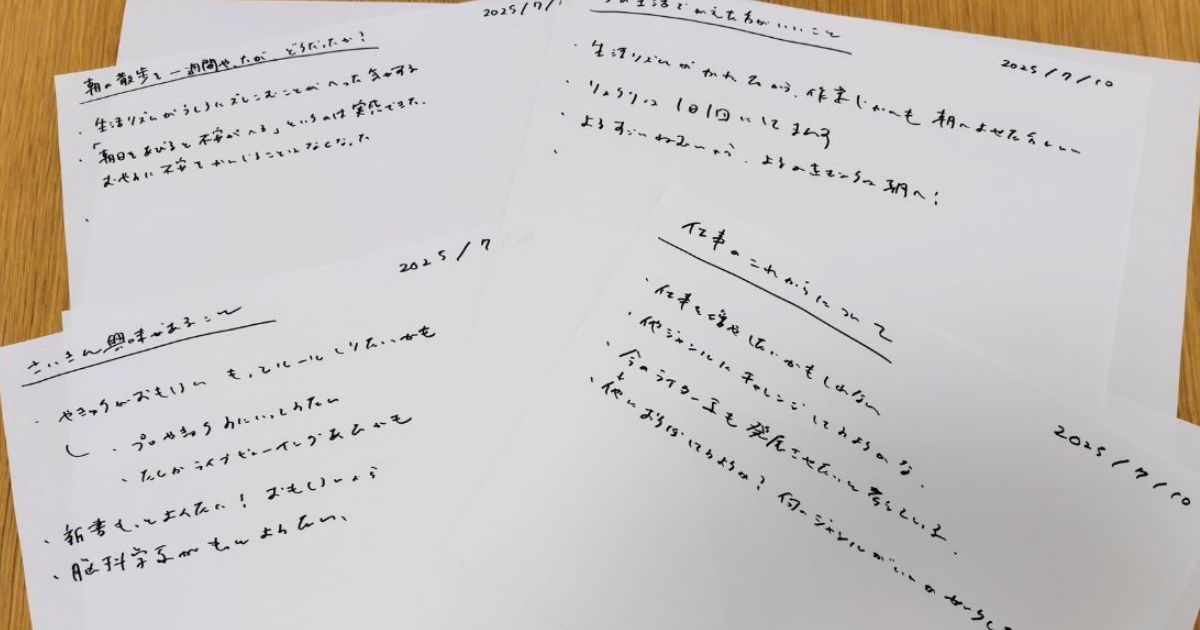 2025/7/1
朝の散歩を一週間やったが、どうだったか?
・生活リズムがうしろにズレこむことがへった気がする
・「朝日をあびると不安がへる」というのは実感できた。
おやみに不安をかんじることはなくなった
・
生活でかえた方がいいこと
2025/7/10
・生活リズムが
作業じかんも朝へよせた方
・りょうりは1日1回にしてます
・よるすごいねむいから、よるの
朝へ!
・
2025/7
さいきん興味があること
・やきゅうがおもしろい もっとルールしりたいかも
・プロやきゅうみにいってみたい
・たしかライブビューイングあるかも
・新書もっとよみたい!おもしろいから
・脳科学系がもっとよみたい、
仕事のこれからについて
2025/7/10
・仕事を増やしたいかもしれない
・他ジャンルにチャレンジしてみようかな。
・今のライター業も発展させたいと考えている。
・他におうぼしてみようか?何のジャンルがいいか